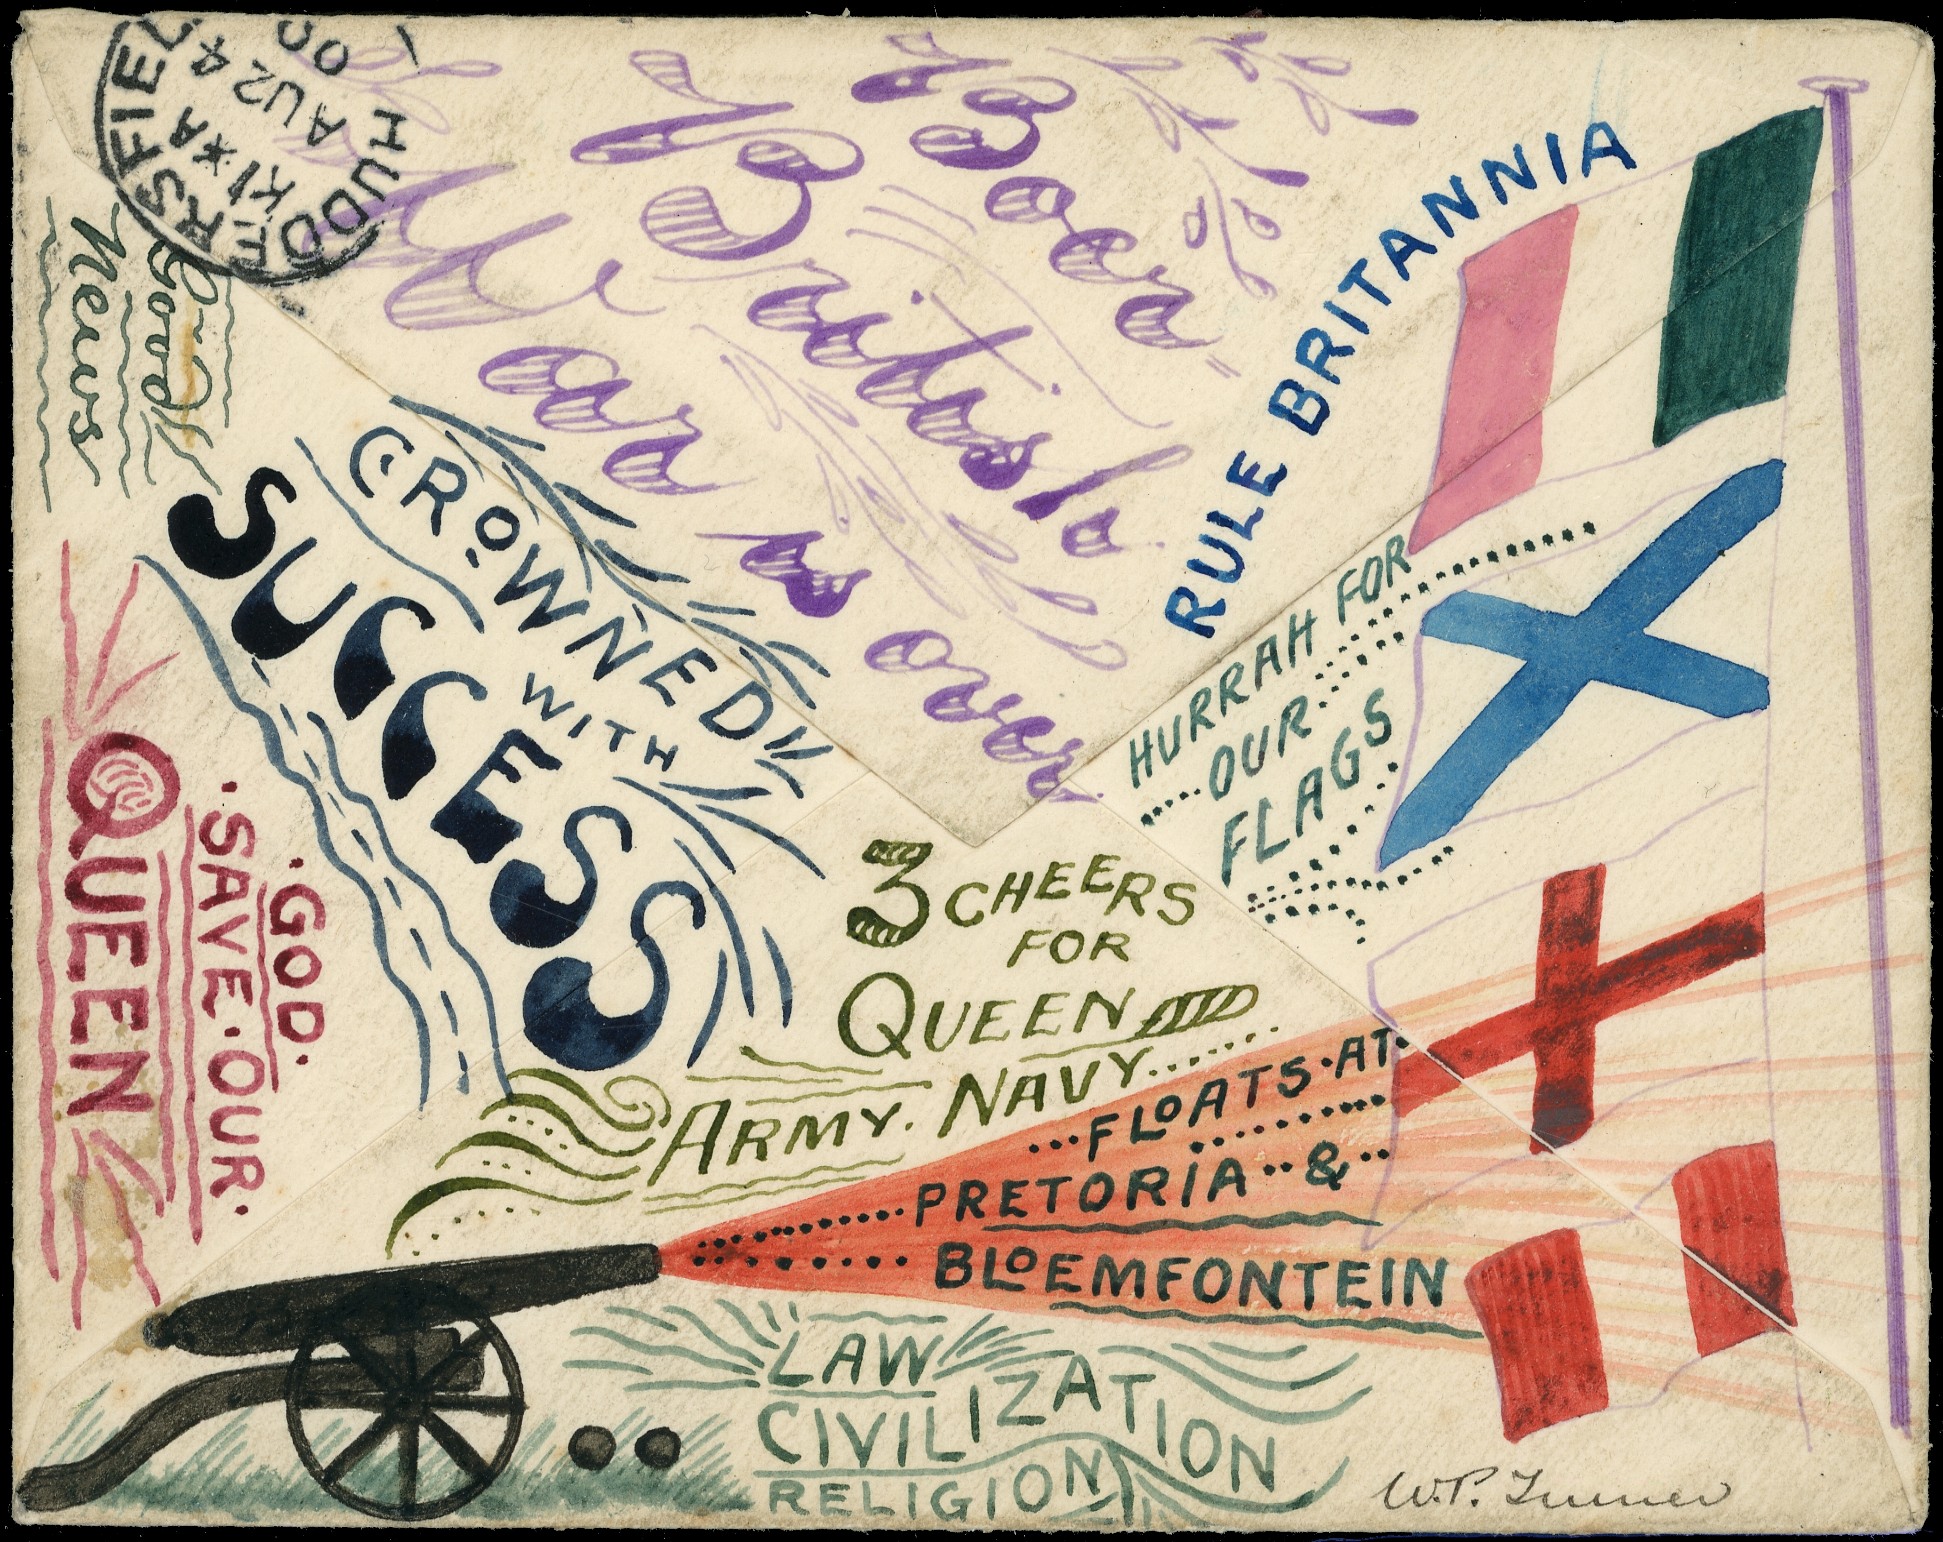 HUDDERSFIELD
KI * A
AU 24
00
Good
News
Boer
British
War
is
over
RULE BRITANNIA
CROWNED
WITH
SUCCESS
HURRAH FOR
OUR
FLAGS
GOD.
SAVE.OUR.
QUEEN
3 CHEERS
FOR
QUEEN
ARMY. NAVY......
...FLOATS.AT.
PRETORIA..&..
BLOEMFONTEIN
LAW
CIVILIZATION
RELIGION
W.P. Turner